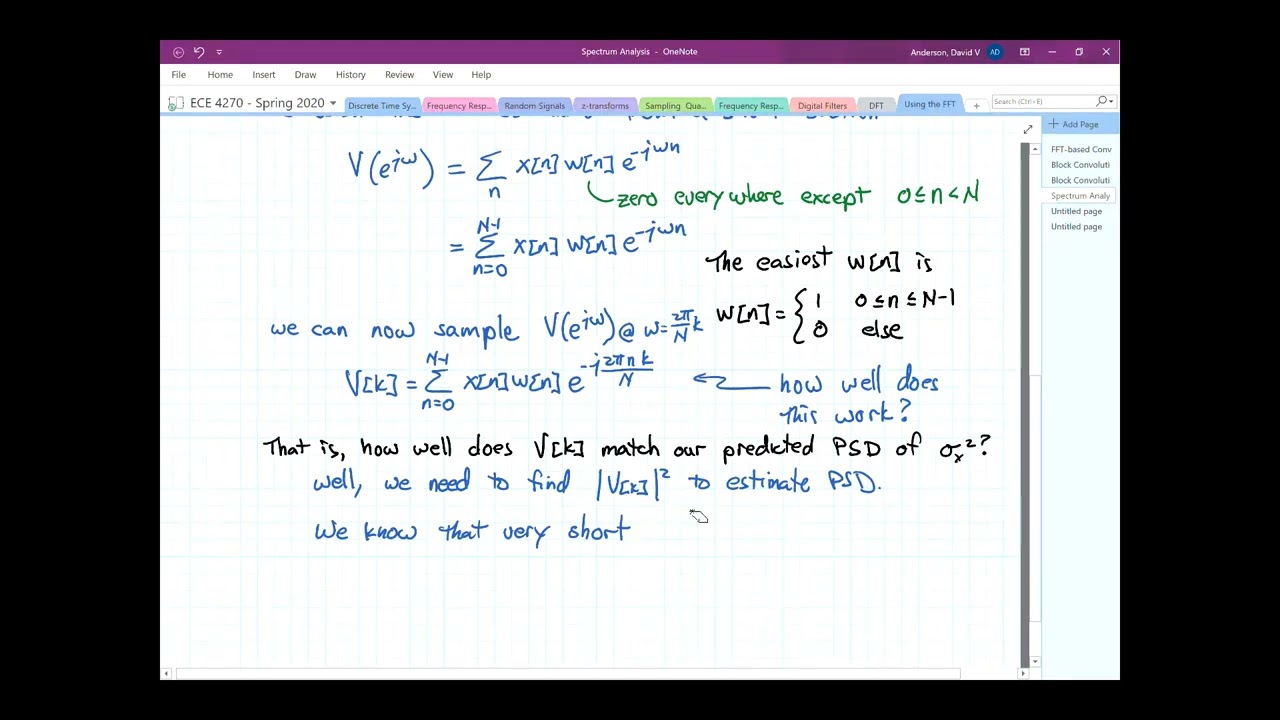 Spectrum Analysis - OneNote
Anderson, David V AD
File Home Insert Draw History Review View Help
ECE 4270 - Spring 2020
Discrete Time Sy... Frequency Resp... Random Signals z-transforms Sampling Qua... Frequency Resp... Digital Filters DFT Using the FFT
Search (Ctrl+E)
Add Page
FFT-based Conv
Block Convoluti
Block Convoluti
Spectrum Analy
Untitled page
Untitled page
V(e^{jω}) = Σ_n x[n] w[n] e^{-jωn}
zero everywhere except 0 ≤ n < N
= Σ_{n=0}^{N-1} x[n] w[n] e^{-jωn}
The easiest w[n] is
w[n] = { 1 0 ≤ n ≤ N-1
0 else
we can now sample V(e^{jω}) @ ω = 2π/N k
V[k] = Σ_{n=0}^{N-1} x[n] w[n] e^{-j 2πnk/N}
how well does
this work?
That is, how well does V[k] match our predicted PSD of σ_x²?
well, we need to find |V[k]|² to estimate PSD.
We know that very short